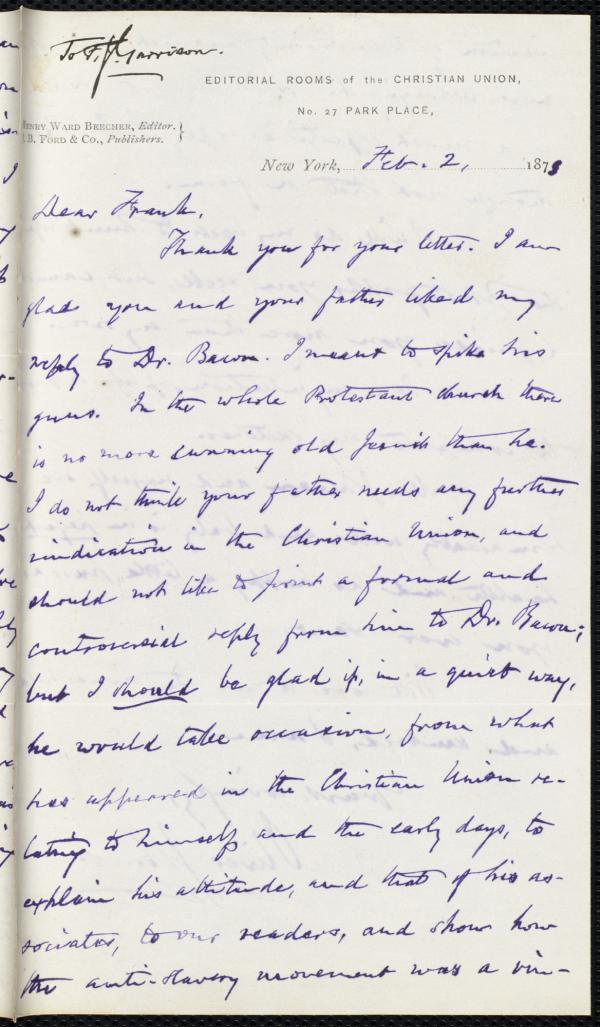 To F. J. Garrison.
EDITORIAL ROOMS of the CHRISTIAN UNION,
No. 27 PARK PLACE,
HENRY WARD BEECHER, Editor.
J. B. FORD & Co., Publishers.
New York, Feb. 2, 1875
Dear Frank,
Thank you for your letter. I am
glad you and your father liked my
reply to Dr. Bacon. I meant to spike his
guns. In the whole Protestant church there
is no more cunning old Jesuit than he.
I do not think your father needs any further
vindication in the Christian Union, and
should not like to print a formal and
controversial reply from him to Dr. Bacon;
but I should be glad if, in a quiet way,
he would take occasion, from what
has appeared in the Christian Union re-
lating to himself and the early days, to
explain his attitude, and that of his as-
sociates, to our readers, and show how
the anti-slavery movement was a vin-